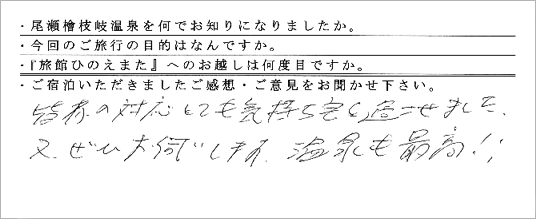 ・尾瀬檜枝岐温泉を何でお知りになりましたか。
・今回のご旅行の目的はなんですか。
・『旅館ひのえまた』へのお越しは何度目ですか。
・ご宿泊いただきましたご感想・ご意見をお聞かせ下さい。
皆様の対応とても気持ち宜く過ごせました、
又、ぜひお伺いします、温泉も最高!!